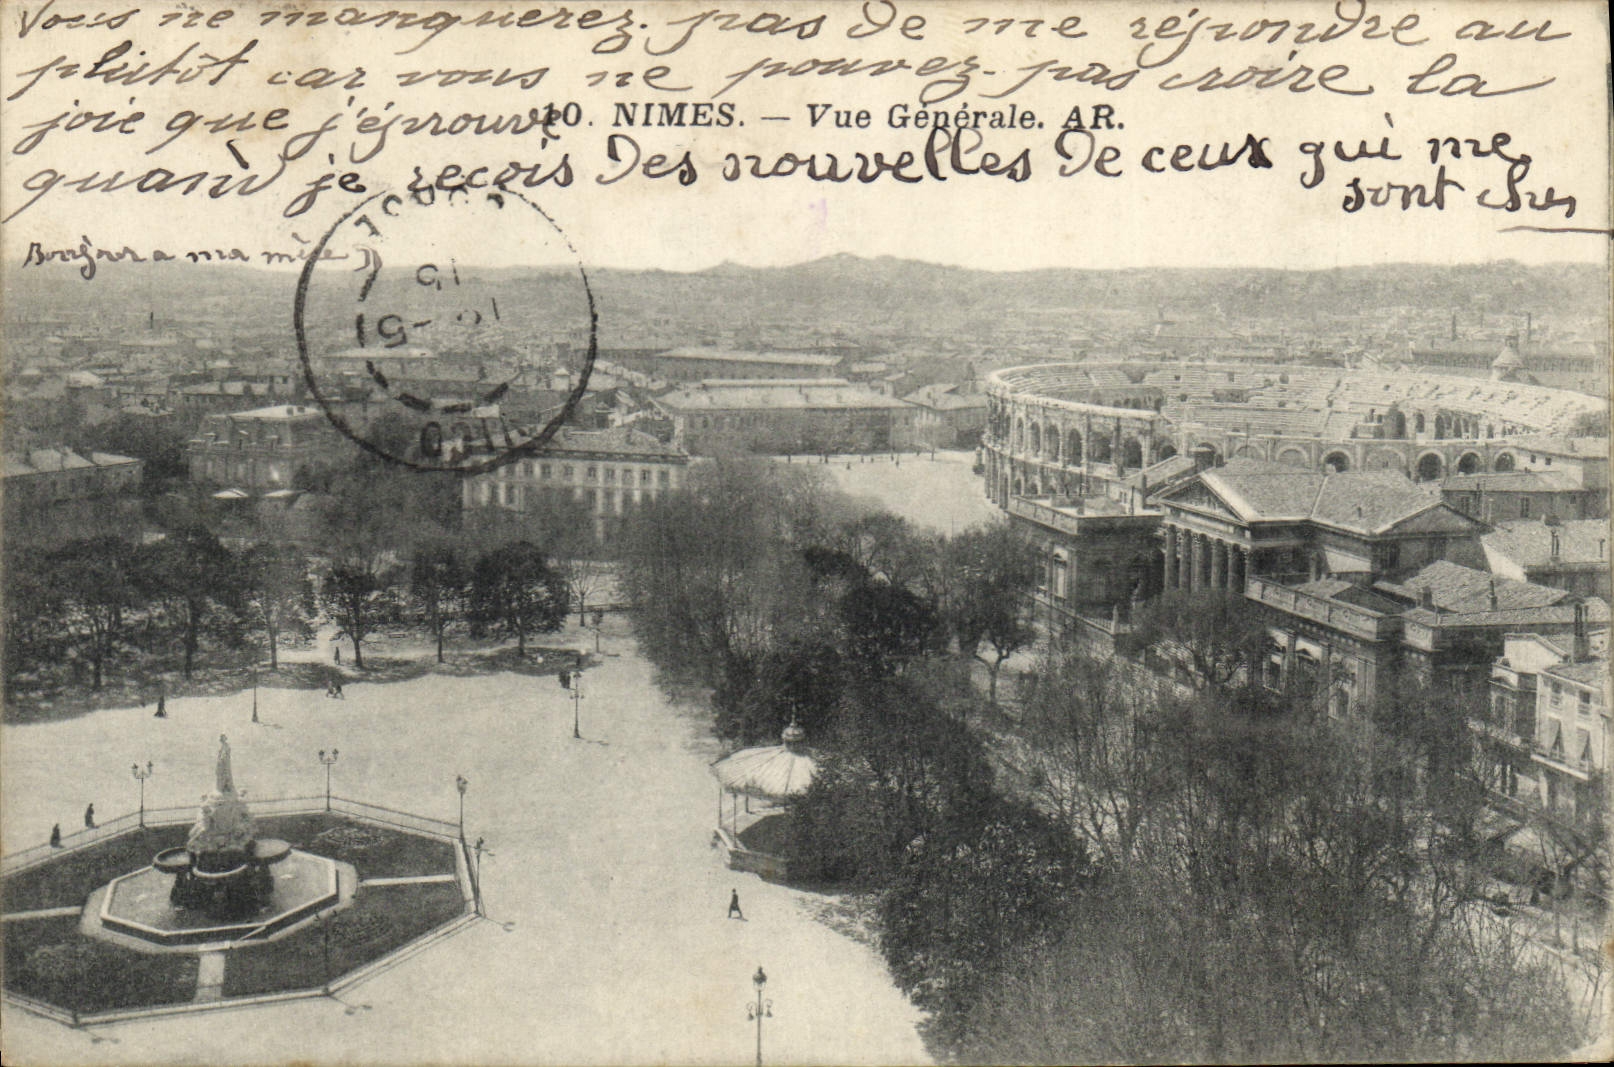 Vous ne manquerez pas de me répondre au
plutôt car vous ne pouvez pas croire la
joie que j'éprouve
10. NIMES. — Vue Générale. AR.
quand je reçois des nouvelles de ceux qui me
sont chers
Bonjour a ma mère